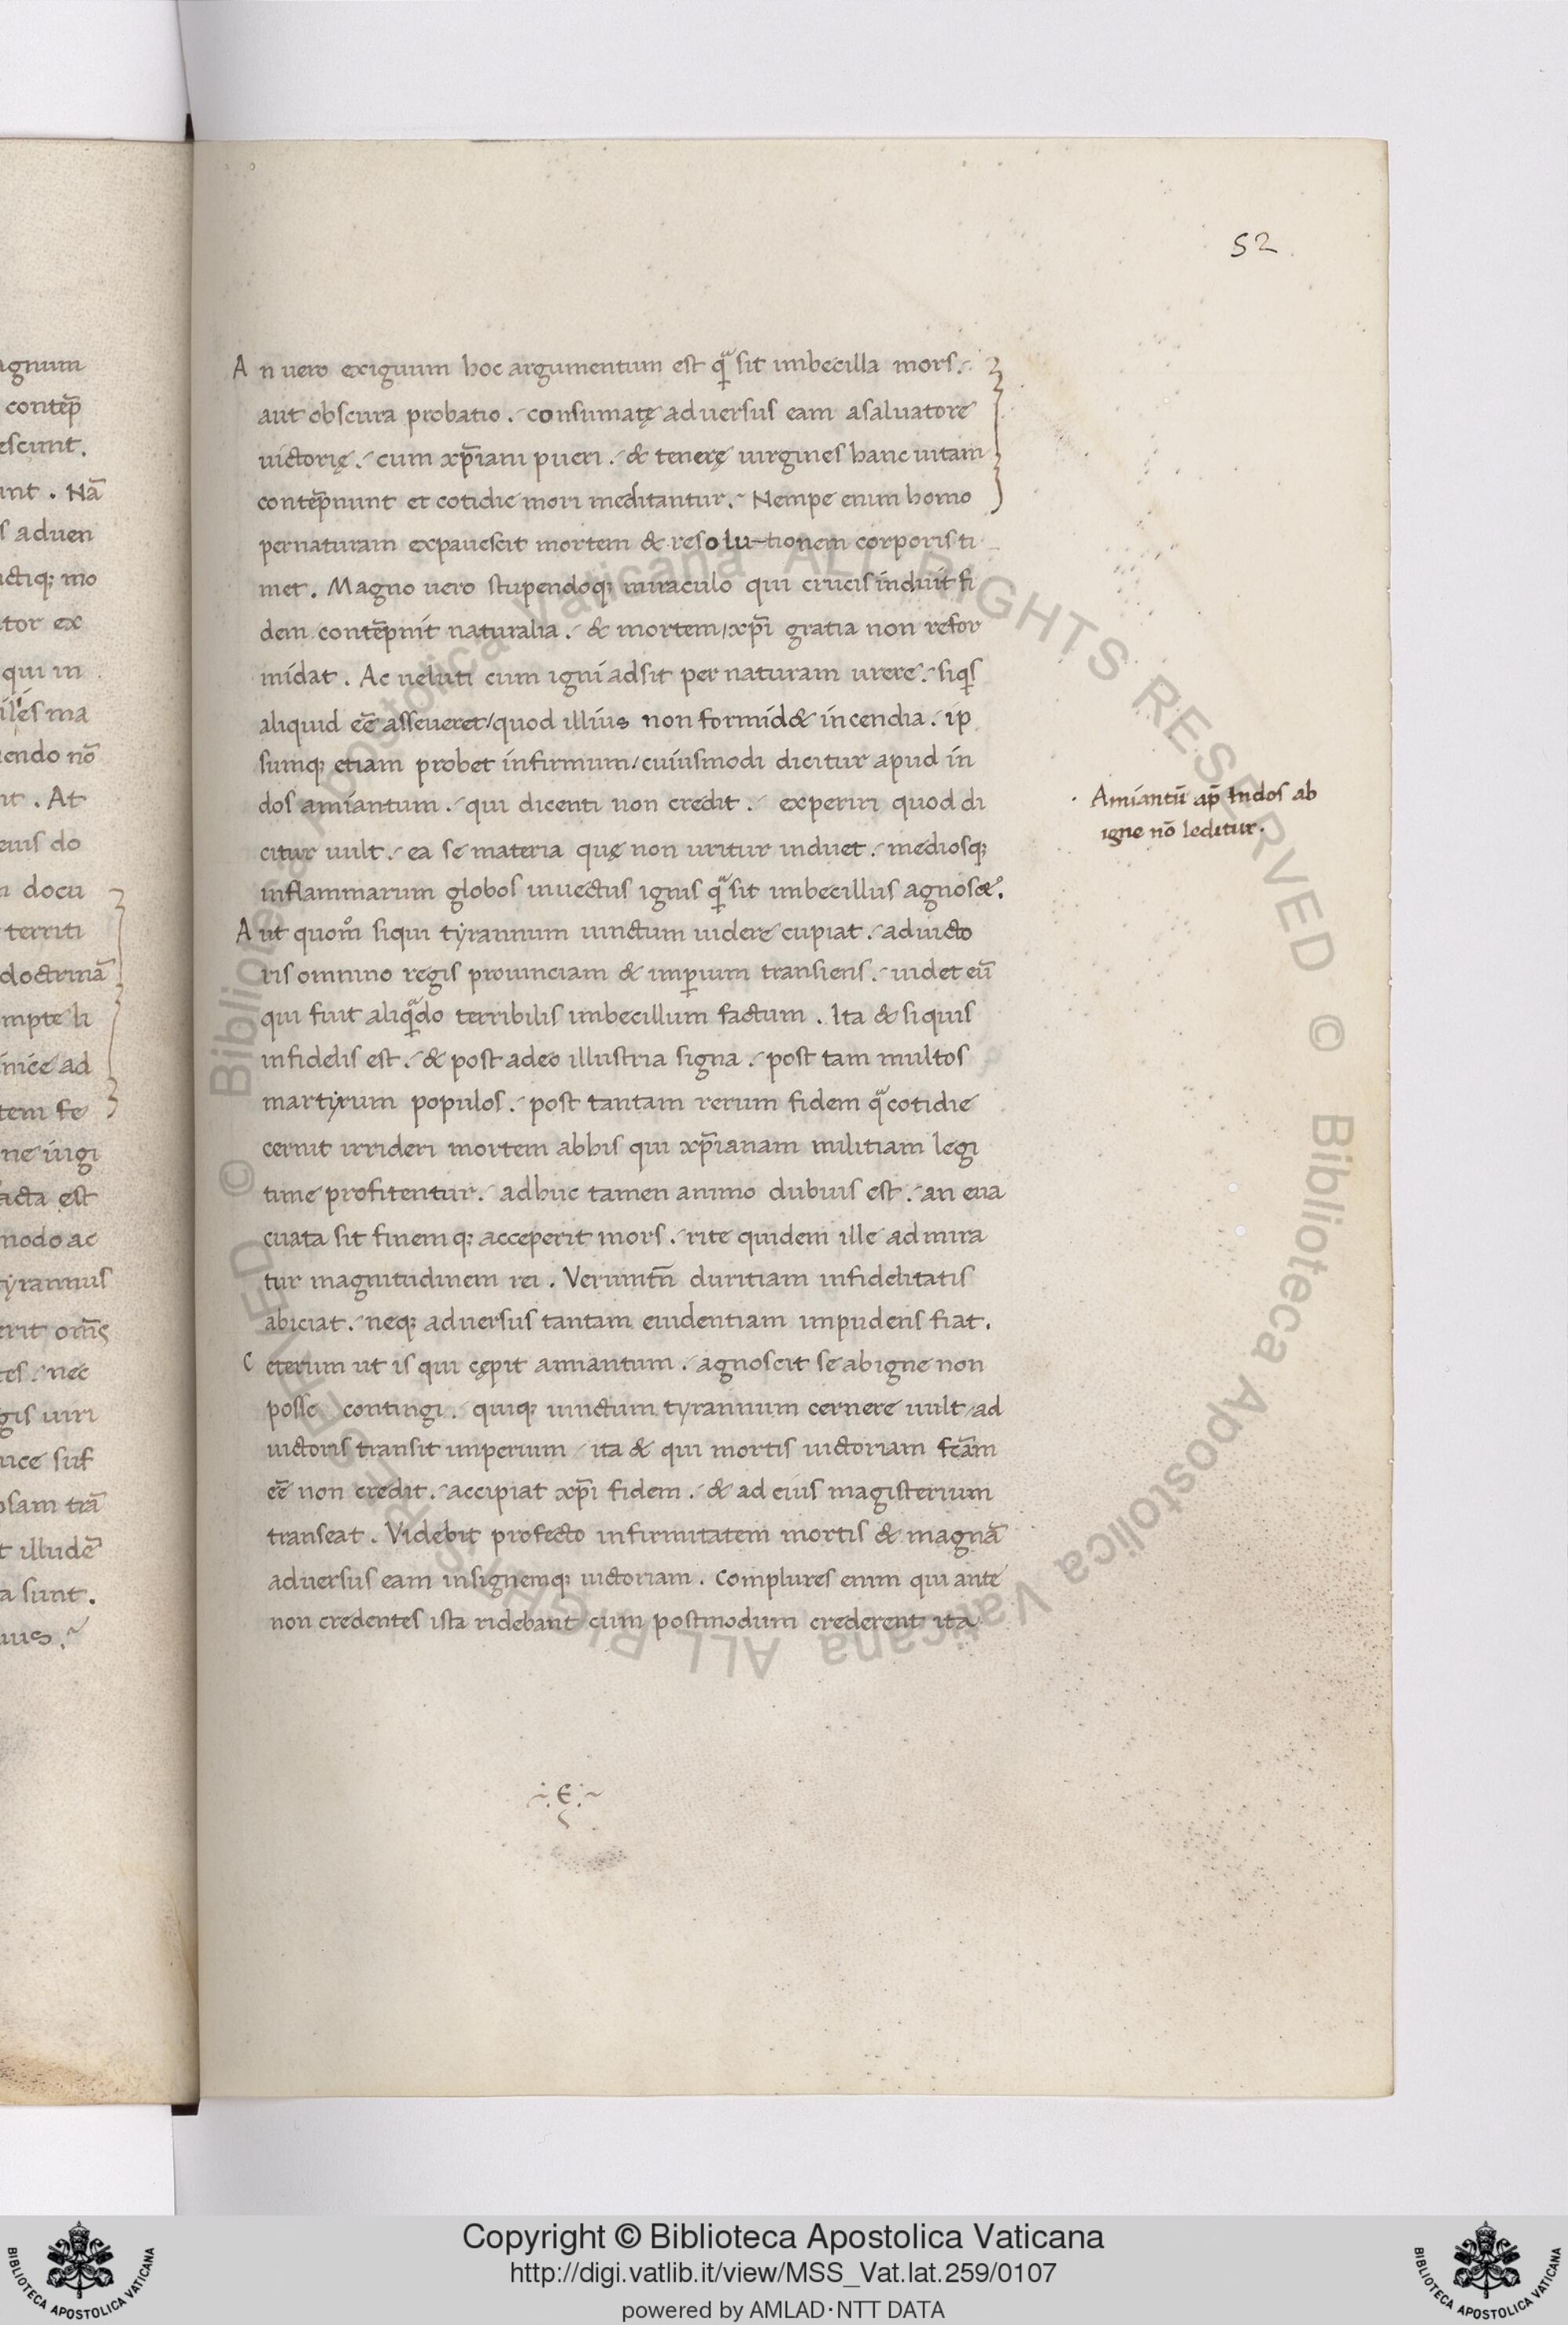 52
An uero exiguum hoc argumentum est qᷓ sit imbecilla mors.
aut obscura probatio. consumatę aduersus eam asaluatore
uictorię. cum xp̄iani pueri. & tenerę uirgines hanc uitam
contēpnunt et cotidie mori meditantur. Nempe enim homo
pernaturam expauescit mortem & resolutionem corporis ti
met. Magno uero stupendoq; miraculo qui crucis induit fi
dem contēpnit naturalia. & mortem/xp̄i gratia non refor
midat. Ac ueluti cum igni adsit per naturam urere. siqs
aliquid eē asseueret/quod illius non formid& incendia. ip
sumq; etiam probet infirmum/cuiusmodi dicitur apud in
dos amiantum. qui dicenti non credit. experiri quod di
citur uult. ea se materia quę non uritur induet. mediosq;
inflammarum globos inuectus ignis qᷓ sit imbecillus agnosc&.
Aut quom̊ siqui tyrannum uinctum uidere cupiat. aduicto
ris omnino regis prouinciam & imꝑium transiens. uidet eū
qui fuit aliqᷓdo terribilis imbecillum factum. Ita & siquis
infidelis est. & post adeo illustria signa. post tam multos
martyrum populos. post tantam rerum fidem qᷓ cotidie
cernit irrideri mortem abhis qui xp̄ianam militiam legi
time profitentur. adhuc tamen animo dubius est. an eua
cuata sit finemq; acceperit mors. rite quidem ille admira
tur magnitudinem rei. Verumtn̄ duritiam infidelitatis
abiciat. neq; aduersus tantam euidentiam impudens fiat.
Ceterum ut is qui cępit amiantum. agnoscit se abigne non
posse contingi. quiq; uinctum tyrannum cernere uult/ad
uictoris transit imperium/ita & qui mortis uictoriam fcām
eē non credit. accipiat xp̄i fidem. & ad eius magisterium
transeat. Videbit profecto infirmitatem mortis & magnā
aduersus eam insignemq; uictoriam. Complures enim qui ante
non credentes ista ridebant cum postmodum crederent ita
Amiantū ap̄ Indos ab
igne nō leditur.
Copyright © Biblioteca Apostolica Vaticana
http://digi.vatlib.it/view/MSS_Vat.lat.259/0107
powered by AMLAD·NTT DATA